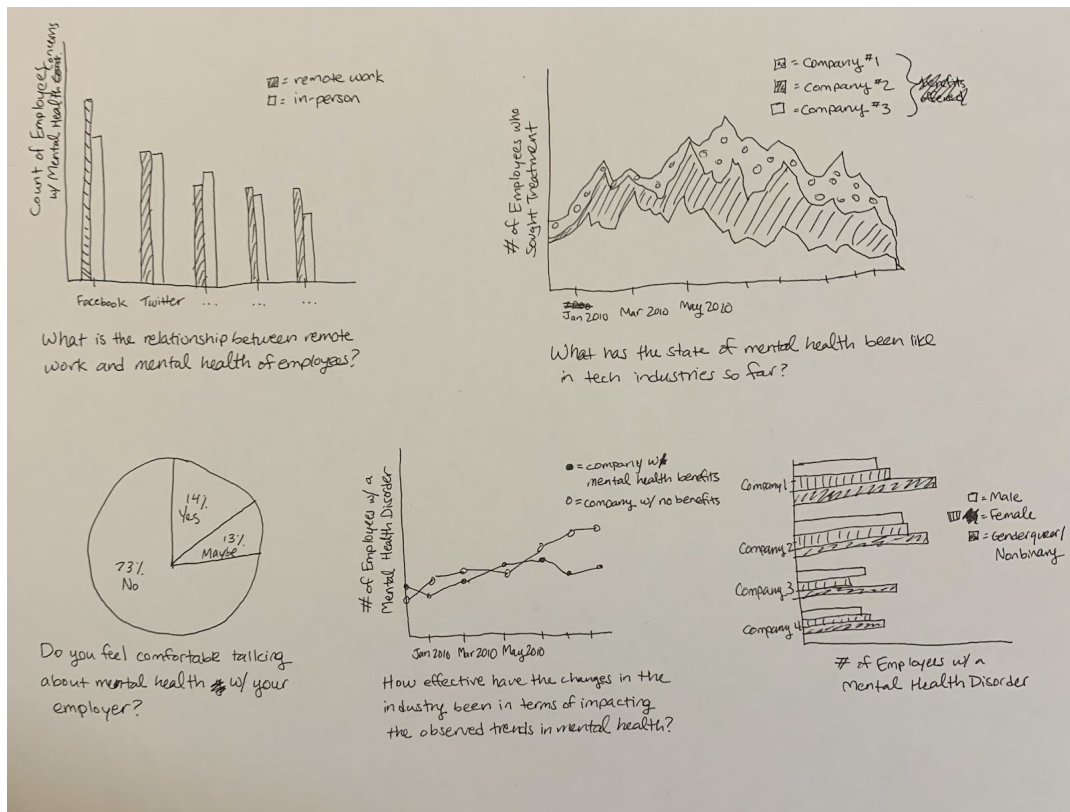 Count of Employees
w/ Mental Health Concerns
= remote work
= in-person
Facebook Twitter ... ... ...
What is the relationship between remote
work and mental health of employees?
# of Employees who
Sought Treatment
= Company #1
= Company #2
= Company #3
Jan 2010 Mar 2010 May 2010
What has the state of mental health been like
in tech industries so far?
14%
Yes
13%
Maybe
73%
No
Do you feel comfortable talking
about mental health w/ your
employer?
# of Employees w/ a
Mental Health Disorder
= company w/
mental health benefits
= company w/ no benefits
Jan 2010 Mar 2010 May 2010
How effective have the changes in the
industry been in terms of impacting
the observed trends in mental health?
Company 1
Company 2
Company 3
Company 4
= Male
= Female
= Genderqueer/
Nonbinary
# of Employees w/ a
Mental Health Disorder